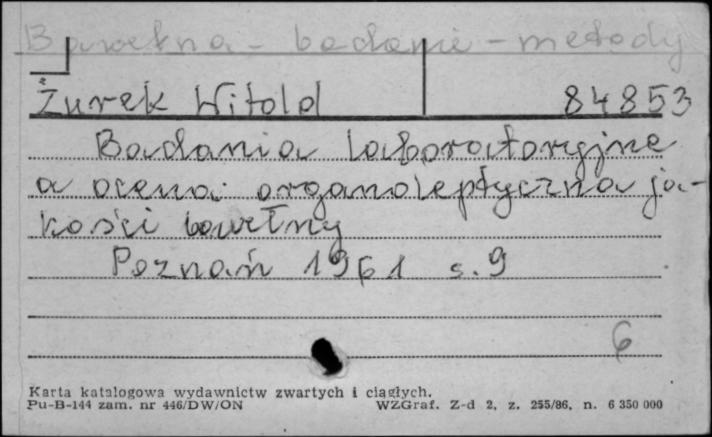 Bawełna - badanie - metody
Żurek Witold 84853
Badania laboratoryjne
a ocena organoleptyczna ja-
kości bawełny
Poznań 1961 s. 9
6
Karta katalogowa wydawnictw zwartych i ciągłych.
Pu-B-144 zam. nr 446/DW/ON WZGraf. Z-d 2, z. 255/86, n. 6 350 000